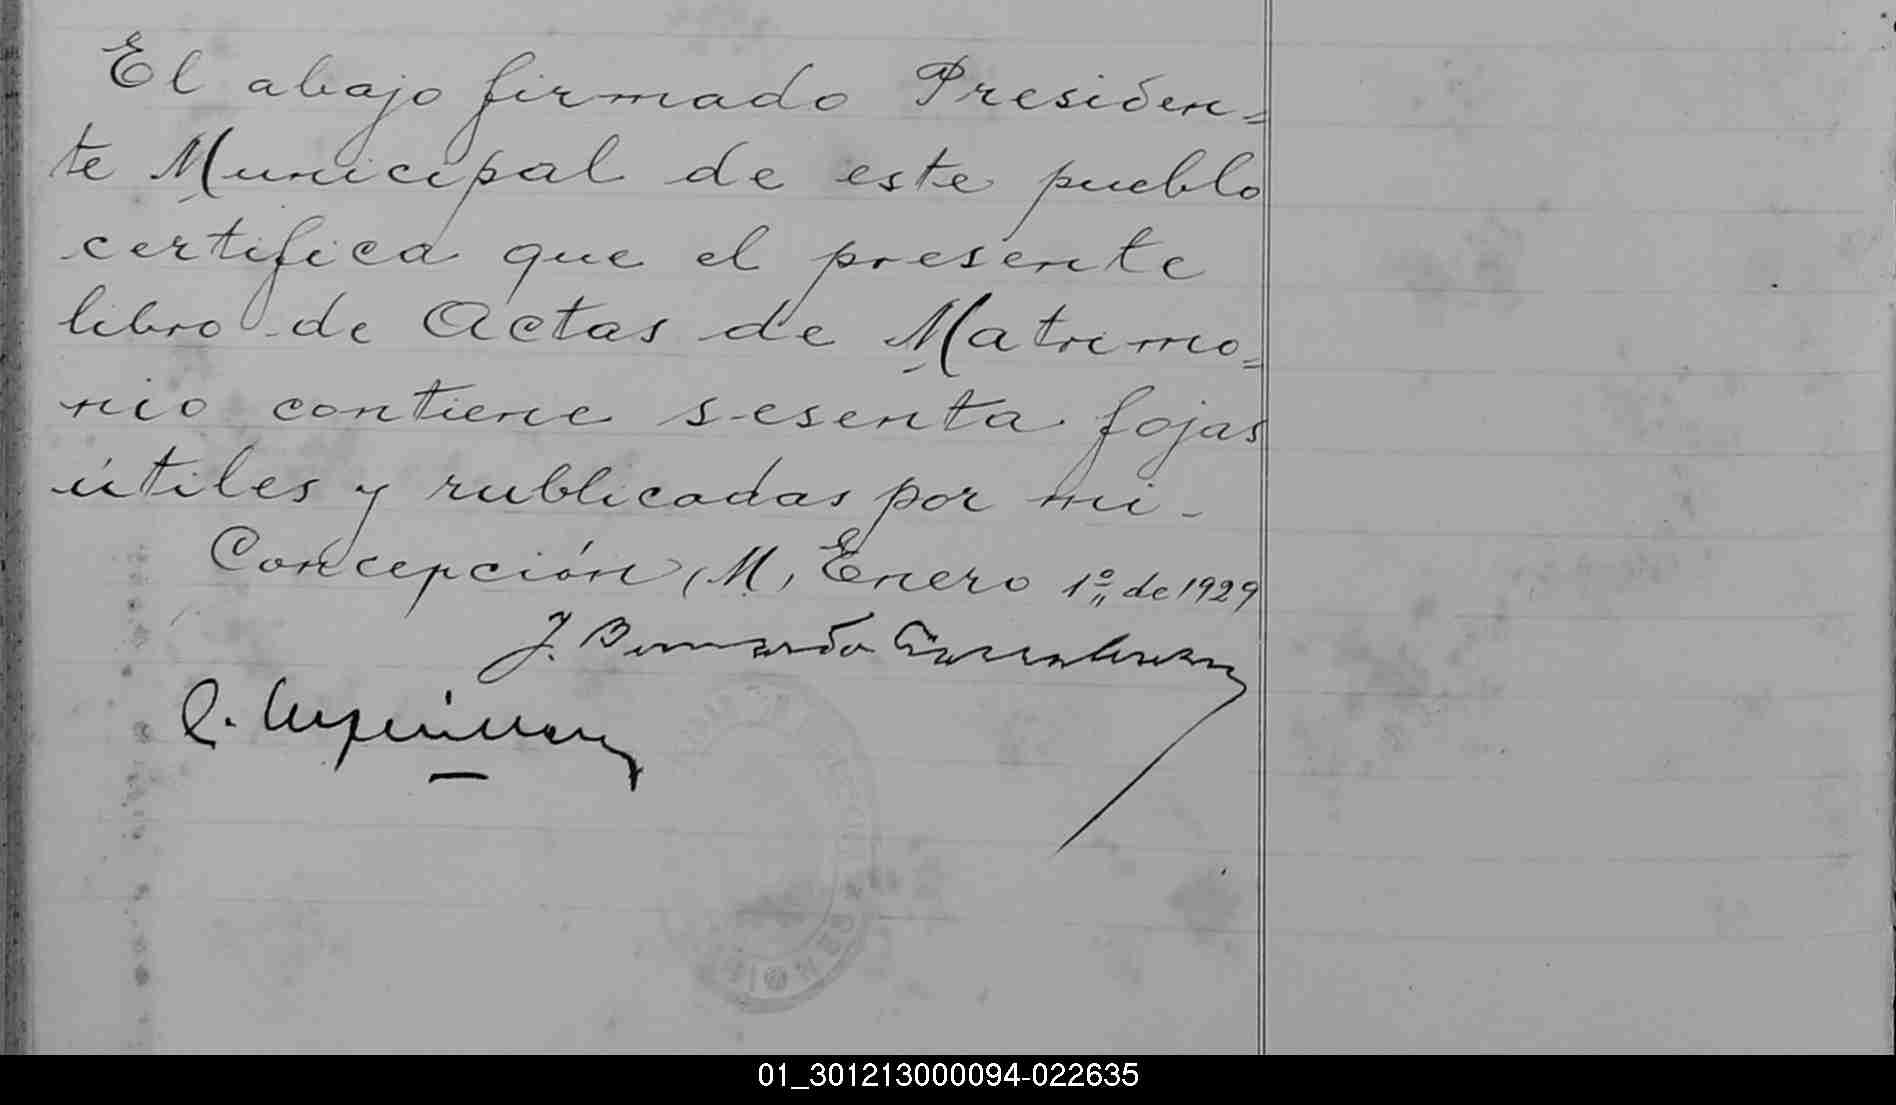 El abajo firmado Presiden=
te Municipal de este pueblo
certifica que el presente
libro de Actas de Matrimo=
nio contiene sesenta fojas
útiles y rublicadas por mi-
Concepción, M, Enero 1º de 1929
J. Bernardo
C.
01_301213000094-022635